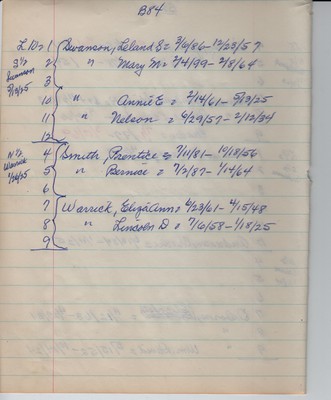 B84
L 10 > 1 Swanson, Leland S = 3/6/86 - 12/23/57
S 1/2 2 " Mary M = 7/4/99 - 2/8/64
Swanson 3
5/13/25 10 " Annie E = 2/14/61 - 5/13/25
11 " Nelson = 6/29/57 - 2/12/34
12
N 1/2 4 Smith, Prentice = 7/11/81 - 10/18/56
Warrick 5 " Bernice = 7/2/87 - 1/14/64
1/20/25 6
7 Warrick, Eliza Ann = 6/23/61 - 4/15/48
8 " Lincoln D = 7/6/58 - 1/18/25
9